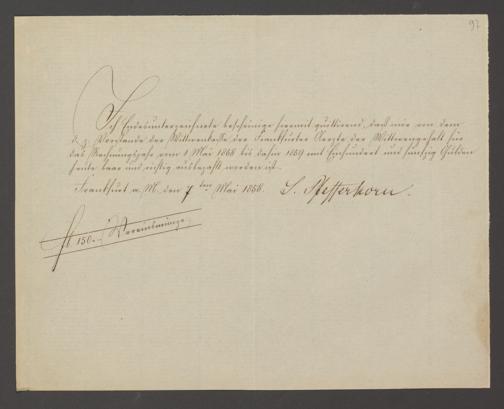 97
Ich Endesunterzeichnete bescheinige hiermit quittirend, daß mir von dem
Vorstande der Wittwenkasse der Frankfurter Aerzte der Wittwengehalt für
das Rechnungsjahr vom 1 Mai 1858 bis dahin 1859 mit Einhundert und fünfzig Gulden
heute baar und richtig ausbezahlt worden ist.
Frankfurt a. M. den 7 ten Mai 1858. S. Pfefferkorn.
fl 150.- Vereinsmünze.